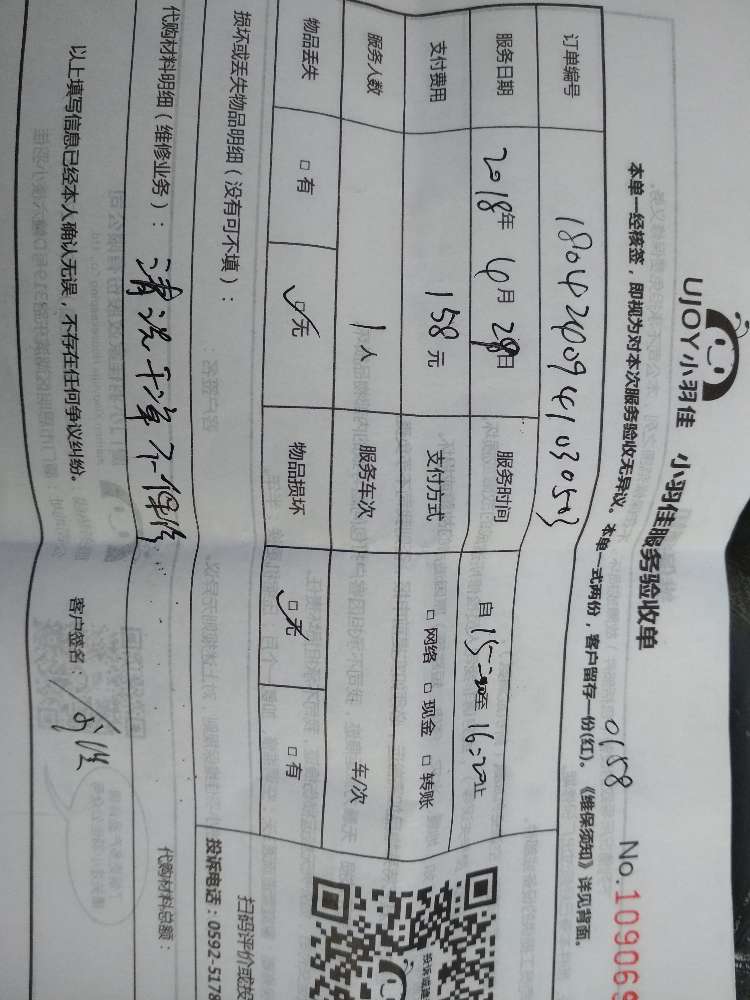 UJOY小羽佳 小羽佳服务验收单
0158 No.109069
本单一经核签，即视为对本次服务验收无异议。本单一式两份，客户留存一份(红)。《维保须知》详见背面。
订单编号 18042409410305
服务日期 2018年 4月 28日 服务时间 自 15:20至 16:20止
支付费用 158元 支付方式 □ 网络 □ 现金 □ 转账
服务人数 1人 服务车次 车/次
物品丢失 □ 有 □ 无 物品损坏 □ 无 □ 有
损坏或丢失物品明细（没有可不填）：
代购材料明细（维修业务）： 清洗 不保修 代购材料总额：
以上填写信息已经本人确认无误，不存在任何争议纠纷。 客户签名：
投诉或建
扫码评价或投
投诉电话：0592-5178